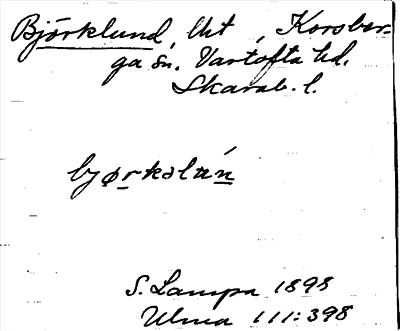 Björklund, Unt, Korsber-
ga sn. Vartofta hd.
Skarab. l.
bjørkəlún
S. Lampa 1898
Ulma 111:398